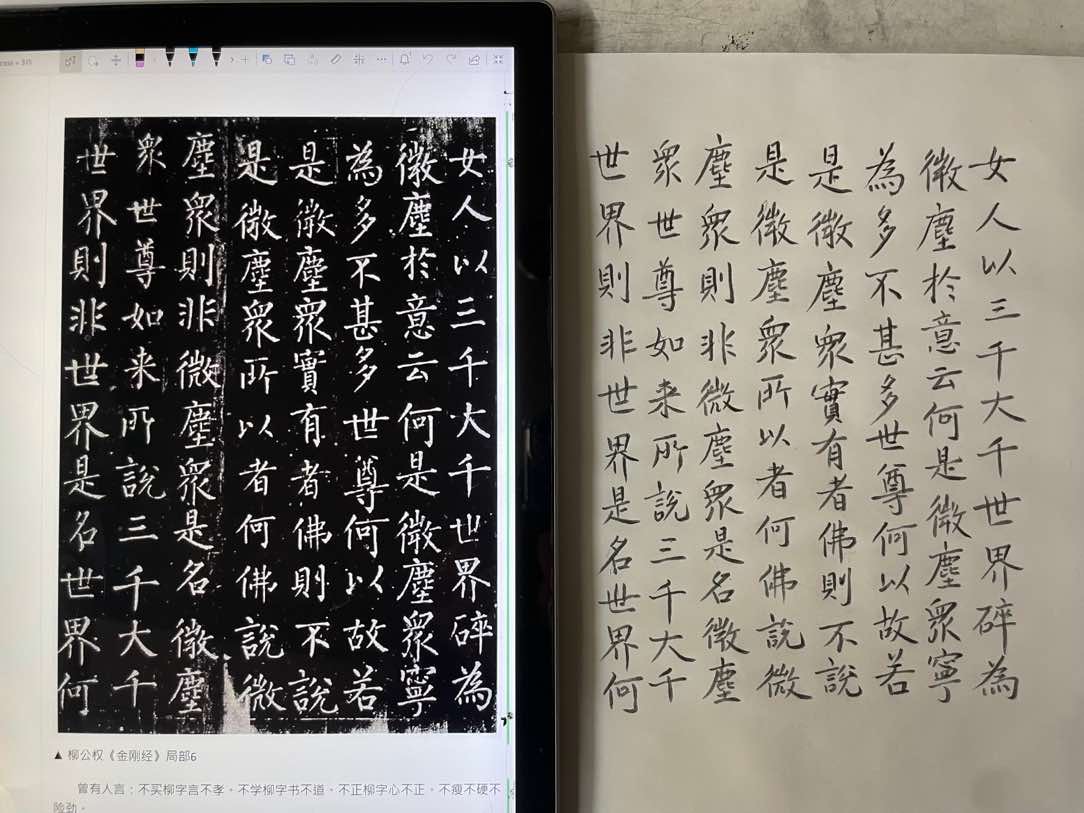 女人以三千大千世界碎為
微塵於意云何是微塵眾寧
為多不甚多世尊何以故若
是微塵眾實有者佛則不說
是微塵眾所以者何佛說微
塵眾則非微塵眾是名微塵
眾世尊如来所說三千大千
世界則非世界是名世界何
▲ 柳公权《金刚经》局部6
曾有人言：不买柳字言不孝。不学柳字书不道。不正柳字心不正。不瘦不硬不
险劲。
女人以三千大千世界碎為
微塵於意云何是微塵眾寧
為多不甚多世尊何以故若
是微塵眾實有者佛則不說
是微塵眾所以者何佛說微
塵眾則非微塵眾是名微塵
眾世尊如来所說三千大千
世界則非世界是名世界何